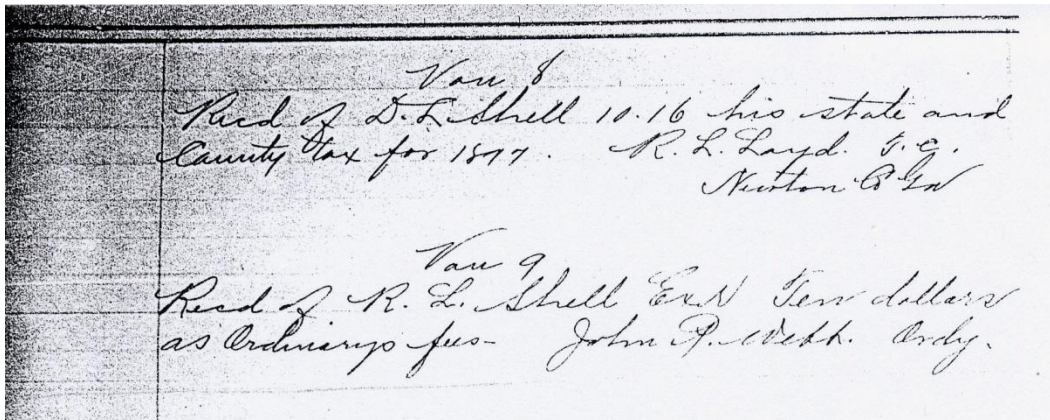 Vou 8
Recd of D. L. Shell 10.16 his state and
County tax for 1877. R. L. Loyd. T. C.
Newton Co Ga
Vou 9
Recd of R. L. Shell Exr Ten dollars
as Ordinarys fees- John P. Webb. Ordy.